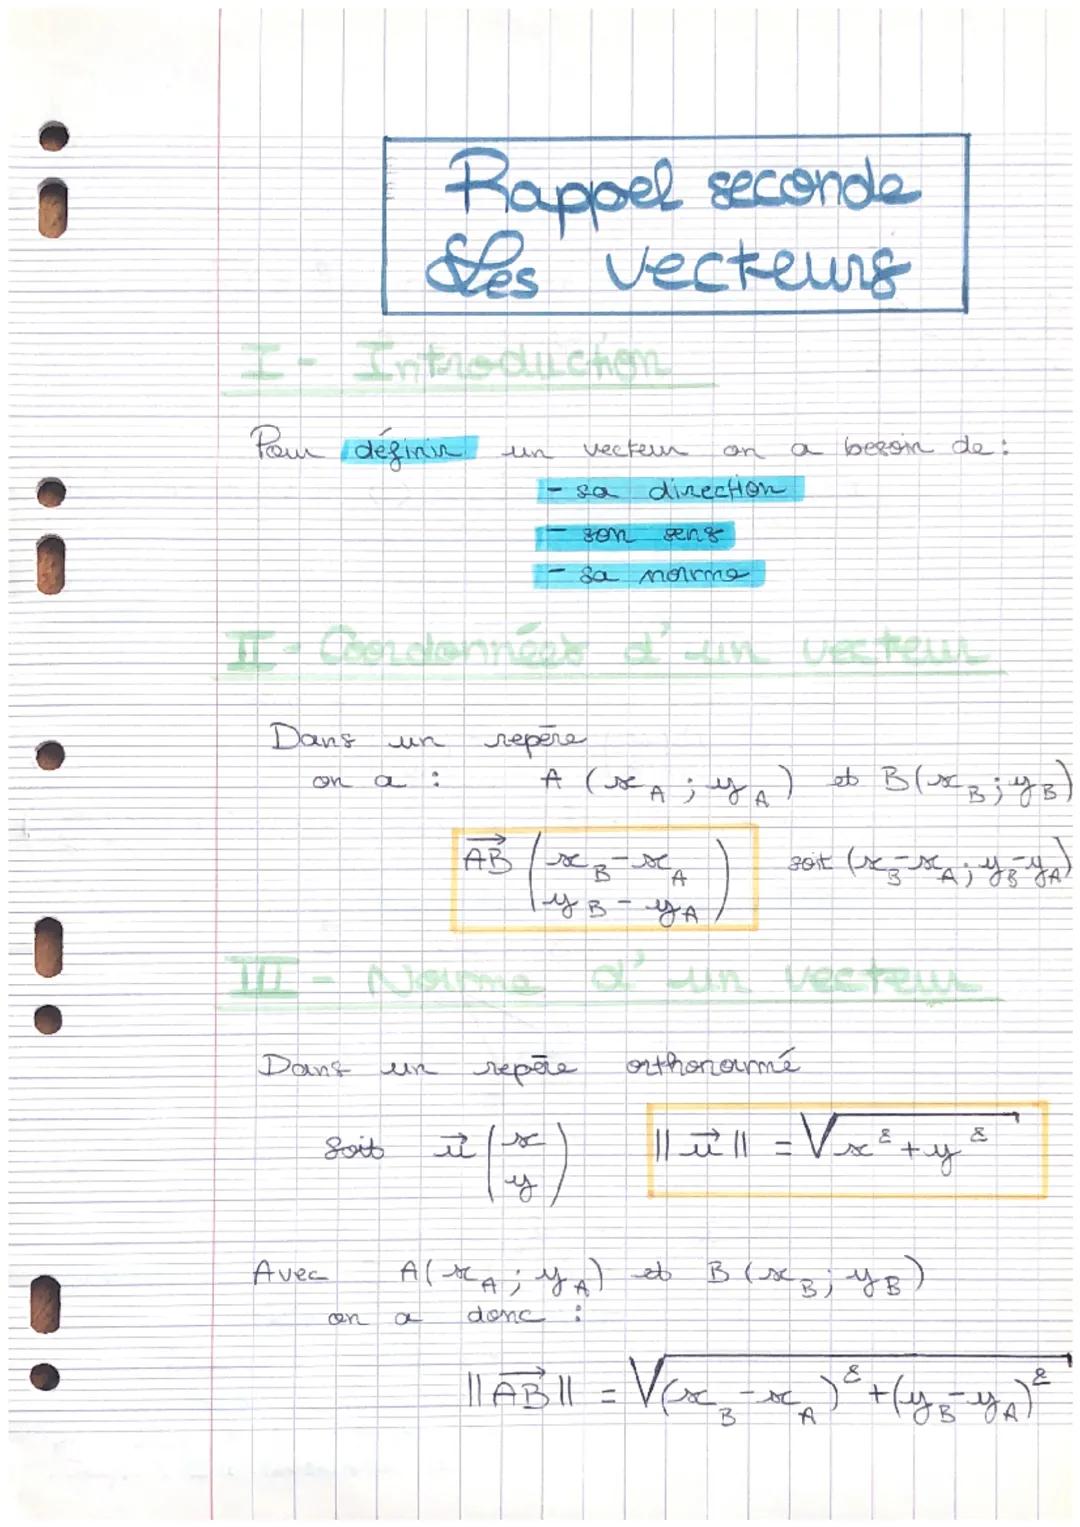 Rappel seconde
Les vecteurs
I - Introduction
Pour définir un vecteur on a besoin de :
- sa direction
- son sens
- sa norme
II - Coordonnées d'un vecteur
Dans un repère
on a : A (x_A ; y_A) et B (x_B ; y_B)
AB→ (x_B - x_A
y_B - y_A) soit (x_B - x_A ; y_B - y_A)
III - Norme d'un vecteur
Dans un repère orthonormé
Soit u→ (x
y) ||u→|| = √(x² + y²)
Avec A(x_A ; y_A) et B (x_B ; y_B)
on a donc :
||AB→|| = √((x_B - x_A)² + (y_B - y_A)²)